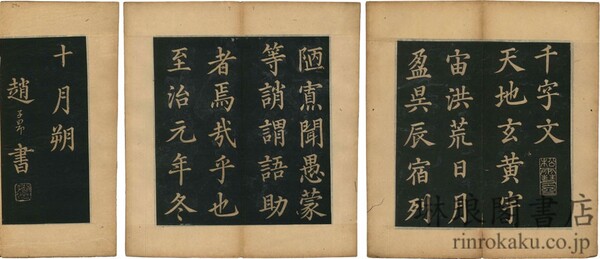 千字文
天地玄黃宇
宙洪荒日月
盈昃辰宿列
陋寡聞愚蒙
等誚謂語助
者焉哉乎也
至治元年冬
十月朔
趙子昂書
琳琅閣書店
rinrokaku.co.jp